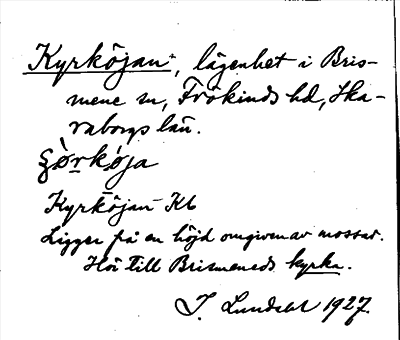 Kyrköjan+, lägenhet i Bris-
mene sn, Frökinds hd, Ska-
raborgs län.
ʂòrkója
Kyrköjan Kb
Ligger på en höjd omgiven av mossar.
Hör till Brismeneds kyrka.
J. Lundahl 1927.